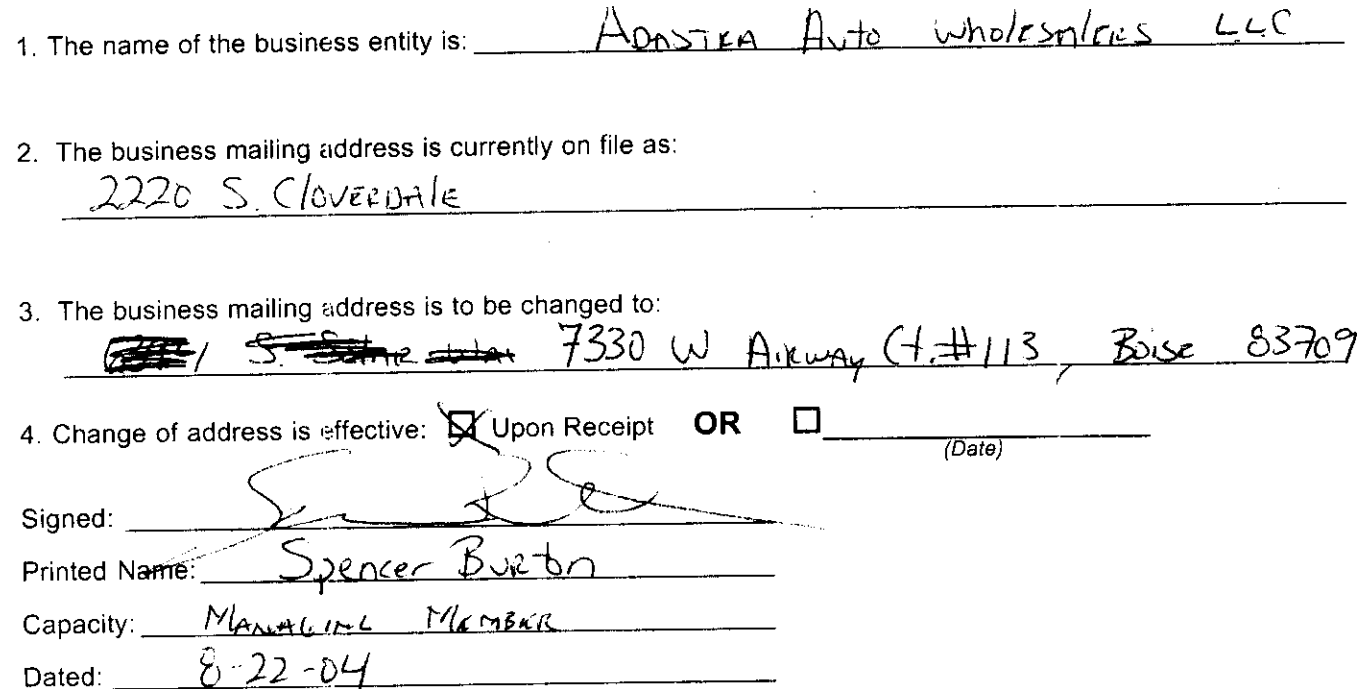 1. The name of the business entity is: ADASTRA Auto Wholesalers LLC
2. The business mailing address is currently on file as:
2220 S. Cloverdale
3. The business mailing address is to be changed to:
7330 W Airway Ct. #113, Boise 83709
4. Change of address is effective: ☒ Upon Receipt OR ☐
(Date)
Signed:
Printed Name: Spencer Burton
Capacity: MANAGING MEMBER
Dated: 8-22-04